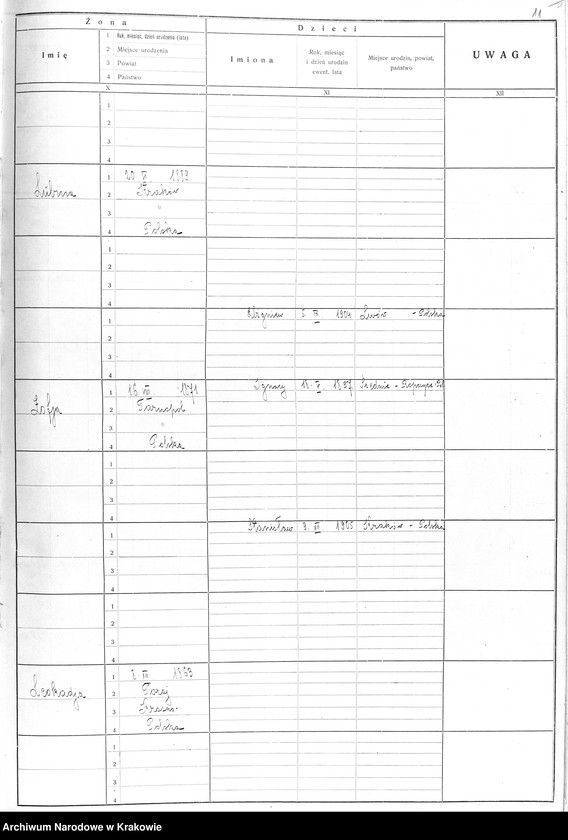 11
Żona
Dzieci
Imię
1 Rok, miesiąc, dzień urodzenia (lata)
2 Miejsce urodzenia
3 Powiat
4 Państwo
Imiona
Rok, miesiąc
i dzień urodzin
ewent. lata
Miejsce urodzin, powiat,
państwo
UWAGA
X
XI
XII
1
2
3
4
1 1889
2 Kraków
3 "
4 Polska
1
2
3
4
1 1904 Lwów - Polska
2
3
4
Zofja
1 16. 1871 Ignacy 1897
2 Tarnopol
3 "
4 Polska
1
2
3
4
1 Stanisław 1905 Kraków - Polska
2
3
4
1
2
3
4
Leokadja
1
2
3
4 Polska
1
2
3
4
Archiwum Narodowe w Krakowie